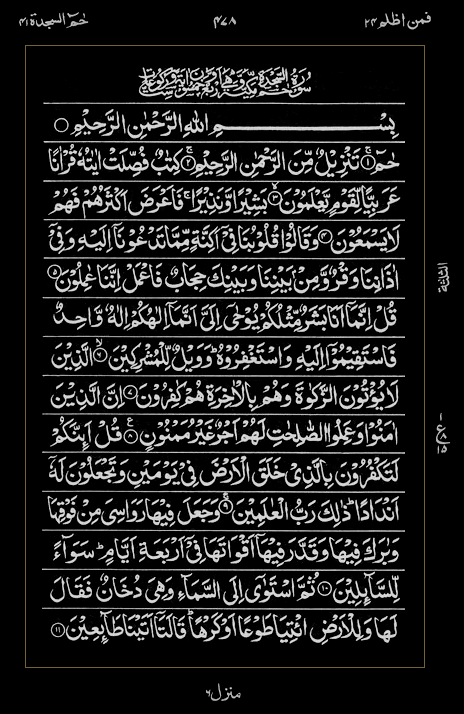 فمن اظلم ٢٤
٤٧٨
حٰمٓ السجدة ٤١
بِسْمِ اللّٰهِ الرَّحْمٰنِ الرَّحِيْمِ
حٰمٓ ١ تَنْزِيْلٌ مِّنَ الرَّحْمٰنِ الرَّحِيْمِ ٢ كِتٰبٌ فُصِّلَتْ اٰيٰتُهٗ قُرْاٰنًا
عَرَبِيًّا لِّقَوْمٍ يَّعْلَمُوْنَ ٣ بَشِيْرًا وَّنَذِيْرًا فَاَعْرَضَ اَكْثَرُهُمْ فَهُمْ
لَا يَسْمَعُوْنَ ٤ وَقَالُوْا قُلُوْبُنَا فِيْٓ اَكِنَّةٍ مِّمَّا تَدْعُوْنَآ اِلَيْهِ وَفِيْٓ
اٰذَانِنَا وَقْرٌ وَّمِنْۢ بَيْنِنَا وَبَيْنِكَ حِجَابٌ فَاعْمَلْ اِنَّنَا عٰمِلُوْنَ ٥
قُلْ اِنَّمَآ اَنَا بَشَرٌ مِّثْلُكُمْ يُوْحٰٓى اِلَيَّ اَنَّمَآ اِلٰهُكُمْ اِلٰهٌ وَّاحِدٌ
فَاسْتَقِيْمُوْٓا اِلَيْهِ وَاسْتَغْفِرُوْهُ ؕ وَوَيْلٌ لِّلْمُشْرِكِيْنَ ٦ الَّذِيْنَ
لَا يُؤْتُوْنَ الزَّكٰوةَ وَهُمْ بِالْاٰخِرَةِ هُمْ كٰفِرُوْنَ ٧ اِنَّ الَّذِيْنَ
اٰمَنُوْا وَعَمِلُوا الصّٰلِحٰتِ لَهُمْ اَجْرٌ غَيْرُ مَمْنُوْنٍ ٨ قُلْ اَئِنَّكُمْ
لَتَكْفُرُوْنَ بِالَّذِيْ خَلَقَ الْاَرْضَ فِيْ يَوْمَيْنِ وَتَجْعَلُوْنَ لَهٗٓ
اَنْدَادًا ؕ ذٰلِكَ رَبُّ الْعٰلَمِيْنَ ٩ وَجَعَلَ فِيْهَا رَوَاسِيَ مِنْ فَوْقِهَا
وَبٰرَكَ فِيْهَا وَقَدَّرَ فِيْهَآ اَقْوَاتَهَا فِيْٓ اَرْبَعَةِ اَيَّامٍ ؕ سَوَآءً
لِّلسَّآئِلِيْنَ ١٠ ثُمَّ اسْتَوٰٓى اِلَى السَّمَآءِ وَهِيَ دُخَانٌ فَقَالَ
لَهَا وَلِلْاَرْضِ ائْتِيَا طَوْعًا اَوْ كَرْهًا ؕ قَالَتَآ اَتَيْنَا طَآئِعِيْنَ ١١
الثلثة
منزل ٦